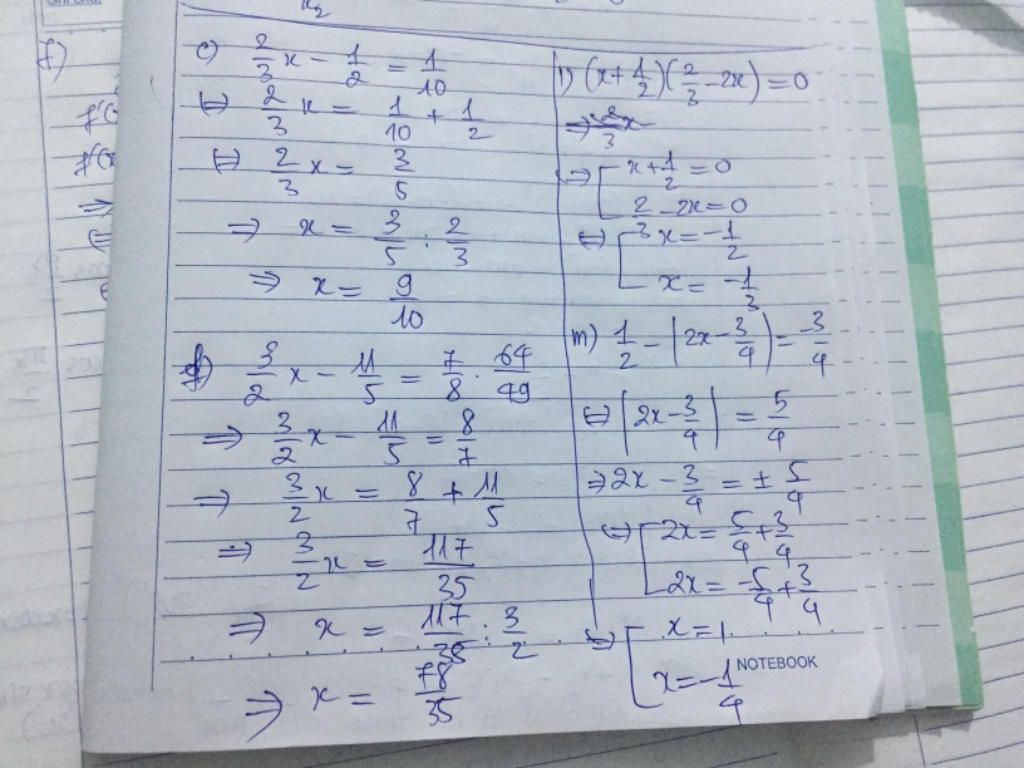 c) 2/3 x - 1/2 = 1/10
⇔ 2/3 x = 1/10 + 1/2
⇔ 2/3 x = 3/5
⇒ x = 3/5 : 2/3
⇒ x = 9/10
f) 3/2 x - 11/5 = 7/8 . 64/49
⇒ 3/2 x - 11/5 = 8/7
⇒ 3/2 x = 8/7 + 11/5
⇒ 3/2 x = 117/35
⇒ x = 117/35 : 3/2
⇒ x = 78/35
l) (x + 1/2)(2/3 - 2x) = 0
⇒ [ x + 1/2 = 0
2/3 - 2x = 0
⇔ [ x = -1/2
x = -1/3
m) 1/2 - |2x - 3/4| = -3/4
⇔ |2x - 3/4| = 5/4
⇒ 2x - 3/4 = ± 5/4
⇔ [ 2x = 5/4 + 3/4
2x = -5/4 + 3/4
⇒ [ x = 1
x = -1/4
NOTEBOOK
f)
x₂